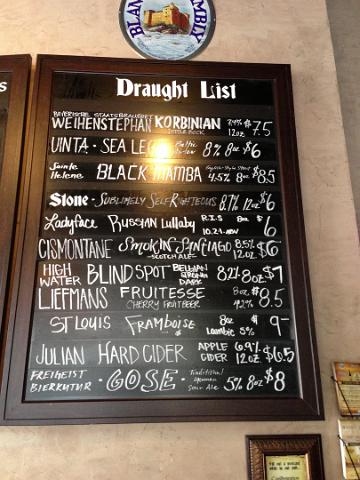 BLAN
MBLY
S
Draught List
BAYERISCHE STAATSBRAUEREI
WEIHENSTEPHAN KORBINIAN 7.4% $7.5
DOPPLEBOCK 12oz
UINTA · SEA LEGS Baltic Porter 8% 8oz $6
Sainte Helene BLACK MAMBA 4.5% 8oz $8.5
Stone · SUBLIMELY SELF RIGHTEOUS 8.7% 12oz $6
Ladyface RUSSIAN Lullaby R.I.S 8oz $6
CISMONTANE SMOKIN' SANTIAGO 8.5% $6
SCOTCH ALE 12oz
HIGH WATER BLIND SPOT BELGIAN STRONG DARK 8.2% 8oz $7
LIEFMANS FRUITESSE 8oz $8.5
CHERRY FRUIT BEER 4.2%
ST LOUIS FRAMBOISE 8oz Lambic 5% $9-
JULIAN HARD CIDER APPLE CIDER 6.9% 12oz $6.5
FREIGEIST BIERKULTUR · GOSE · Traditional German Sour Ale 5% 8oz $8